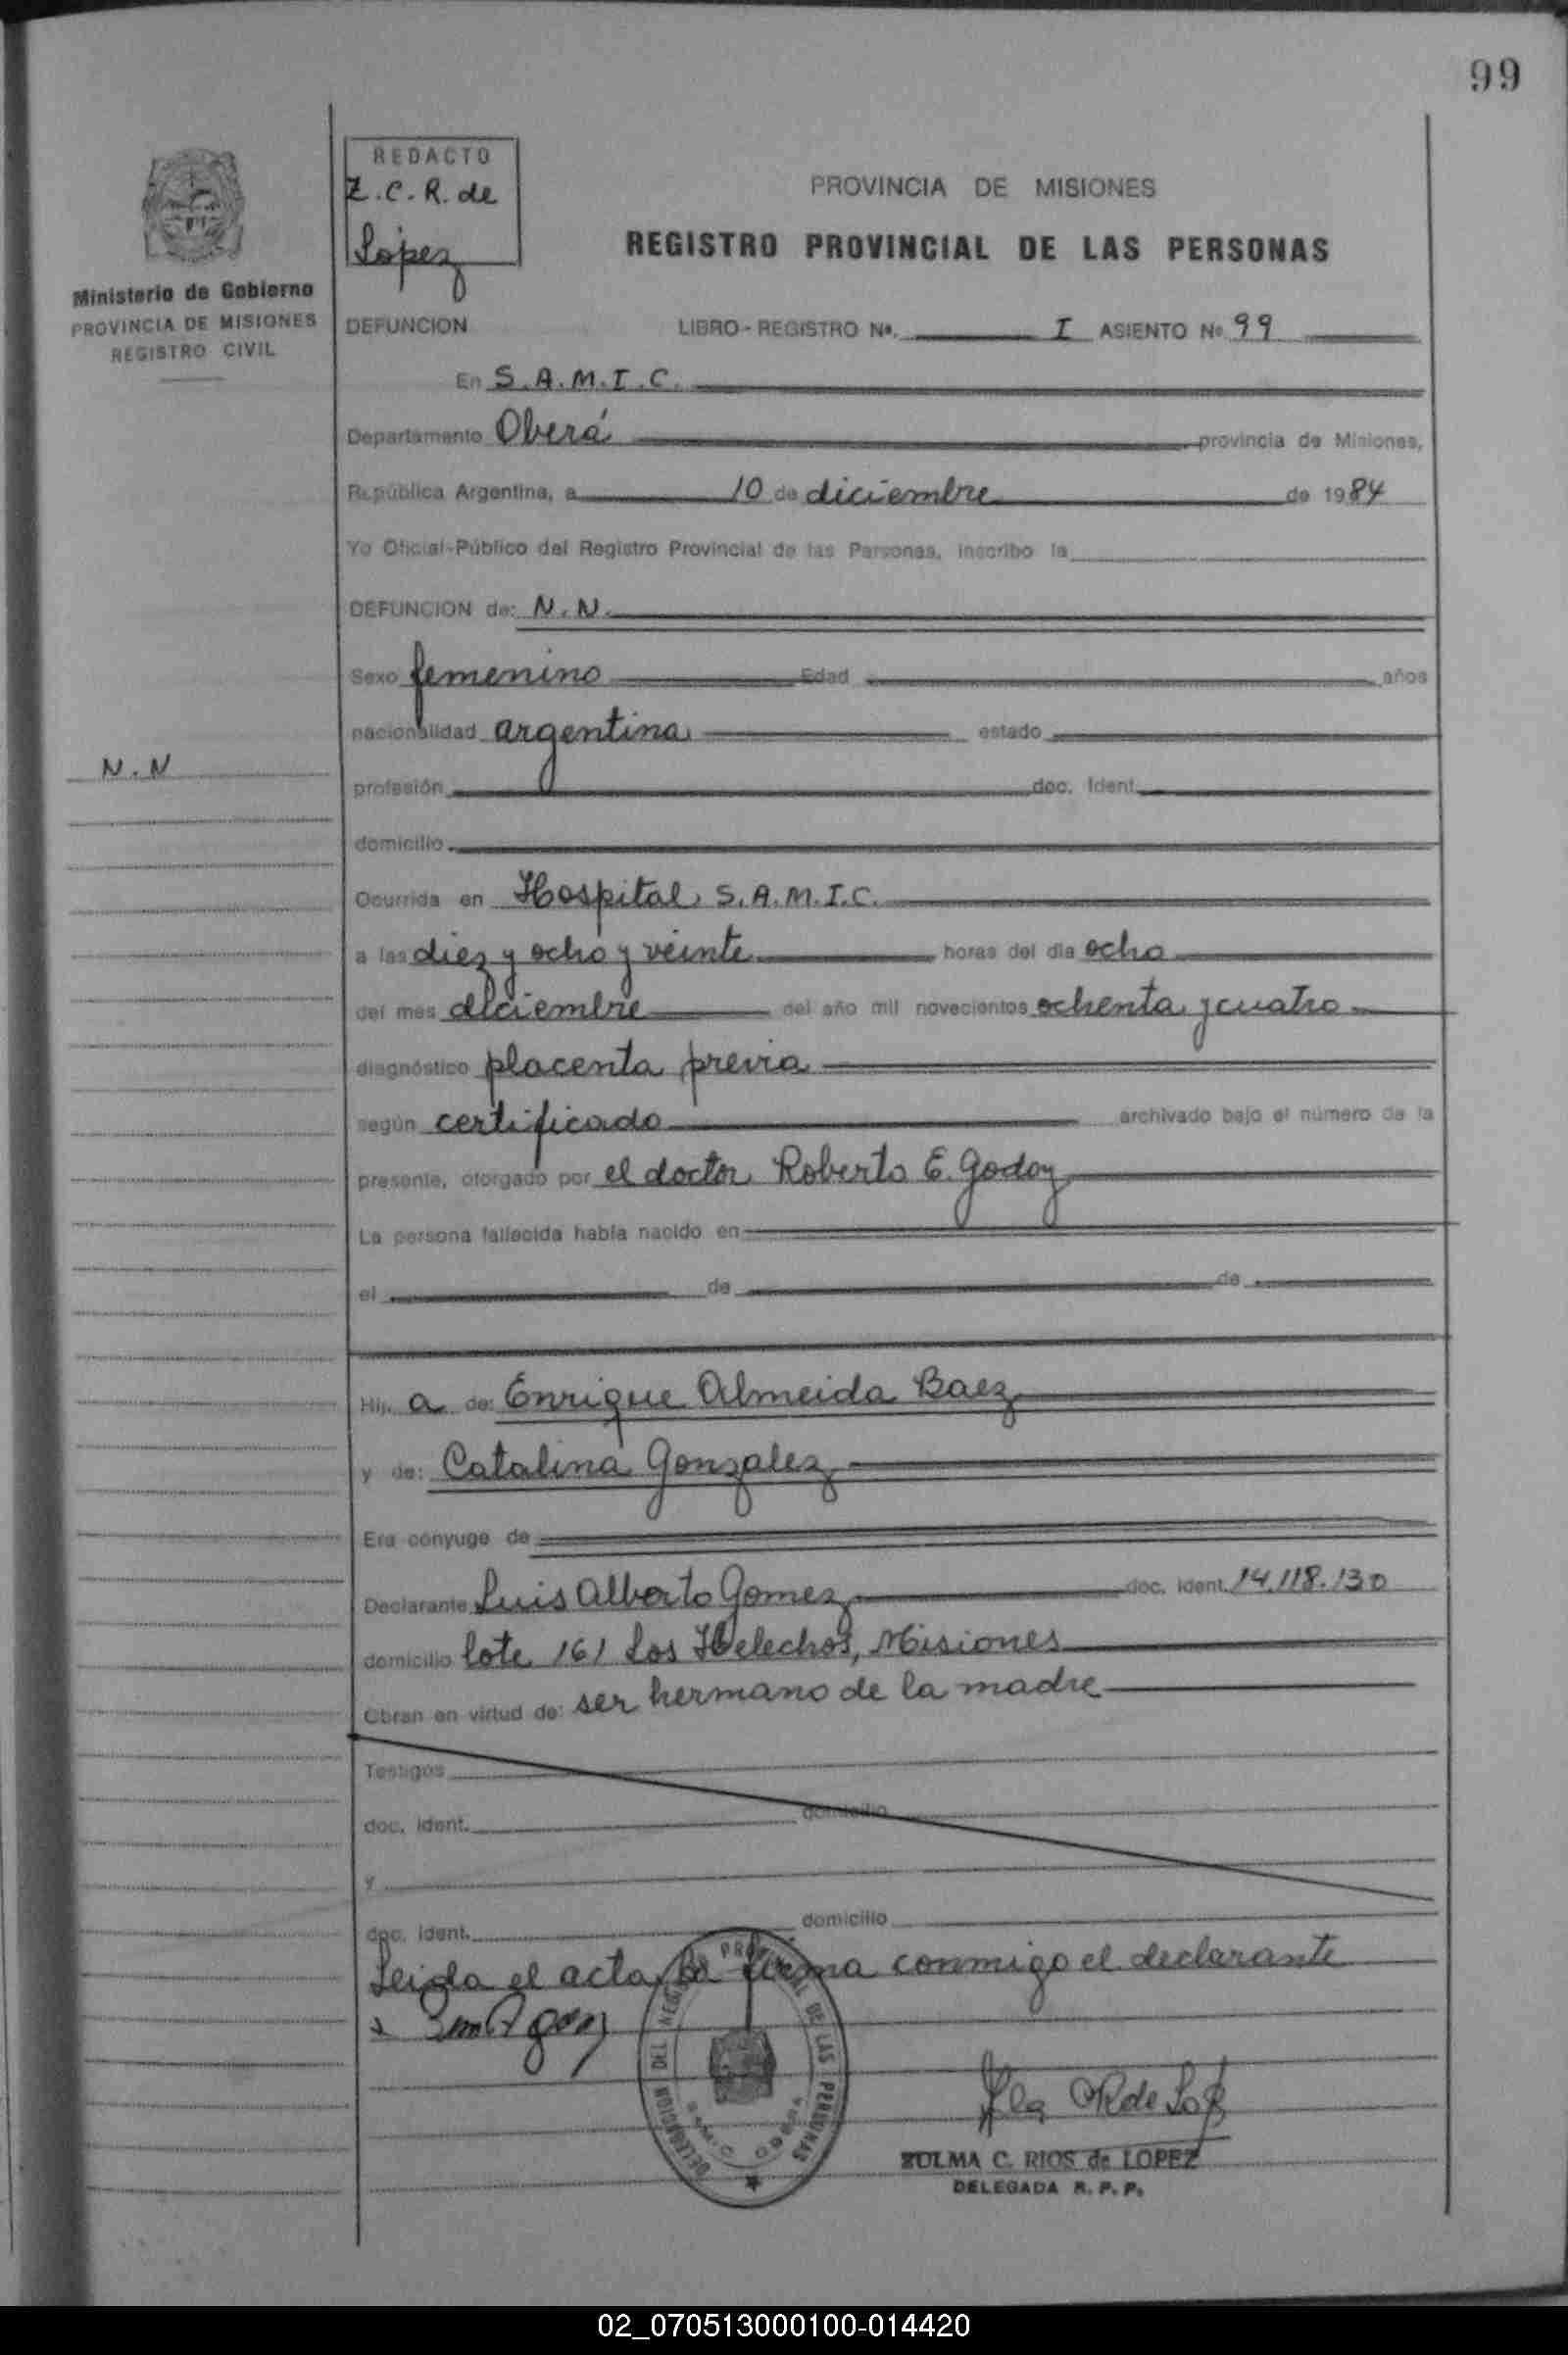 99
REDACTO
Z.C.R. de
Lopez
PROVINCIA DE MISIONES
REGISTRO PROVINCIAL DE LAS PERSONAS
Ministerio de Gobierno
PROVINCIA DE MISIONES
REGISTRO CIVIL
DEFUNCION LIBRO-REGISTRO Nº. I ASIENTO Nº 99
En S.A.M.I.C.
Departamento Oberá provincia de Misiones,
República Argentina, a 10 de diciembre de 1984
Yo Oficial-Público del Registro Provincial de las Personas, inscribo la
DEFUNCION de: N.N.
Sexo femenino Edad años
nacionalidad argentina estado
N.N
profesión doc. Ident.
domicilio
Ocurrida en Hospital S.A.M.I.C.
a las diez y ocho y veinte horas del día ocho
del mes diciembre del año mil novecientos ochenta y cuatro
diagnóstico placenta previa
según certificado archivado bajo el número de la
presente, otorgado por el doctor Roberto E. Godoy
La persona fallecida había nacido en
el de de
Hij a de: Enrique Almeida Baez
y de: Catalina Gonzalez
Era cónyuge de
Declarante Luis Alberto Gomez doc. Ident. 14.118.130
domicilio lote 161 Los Helechos, Misiones
Obran en virtud de: ser hermano de la madre
Testigos
doc. Ident. domicilio
y
doc. Ident. domicilio
Leida el acta la firma conmigo el declarante
DELEGACION DEL REGISTRO PROVINCIAL DE LAS PERSONAS
ZULMA C. RIOS de LOPEZ
DELEGADA R.P.P.
02_070513000100-014420